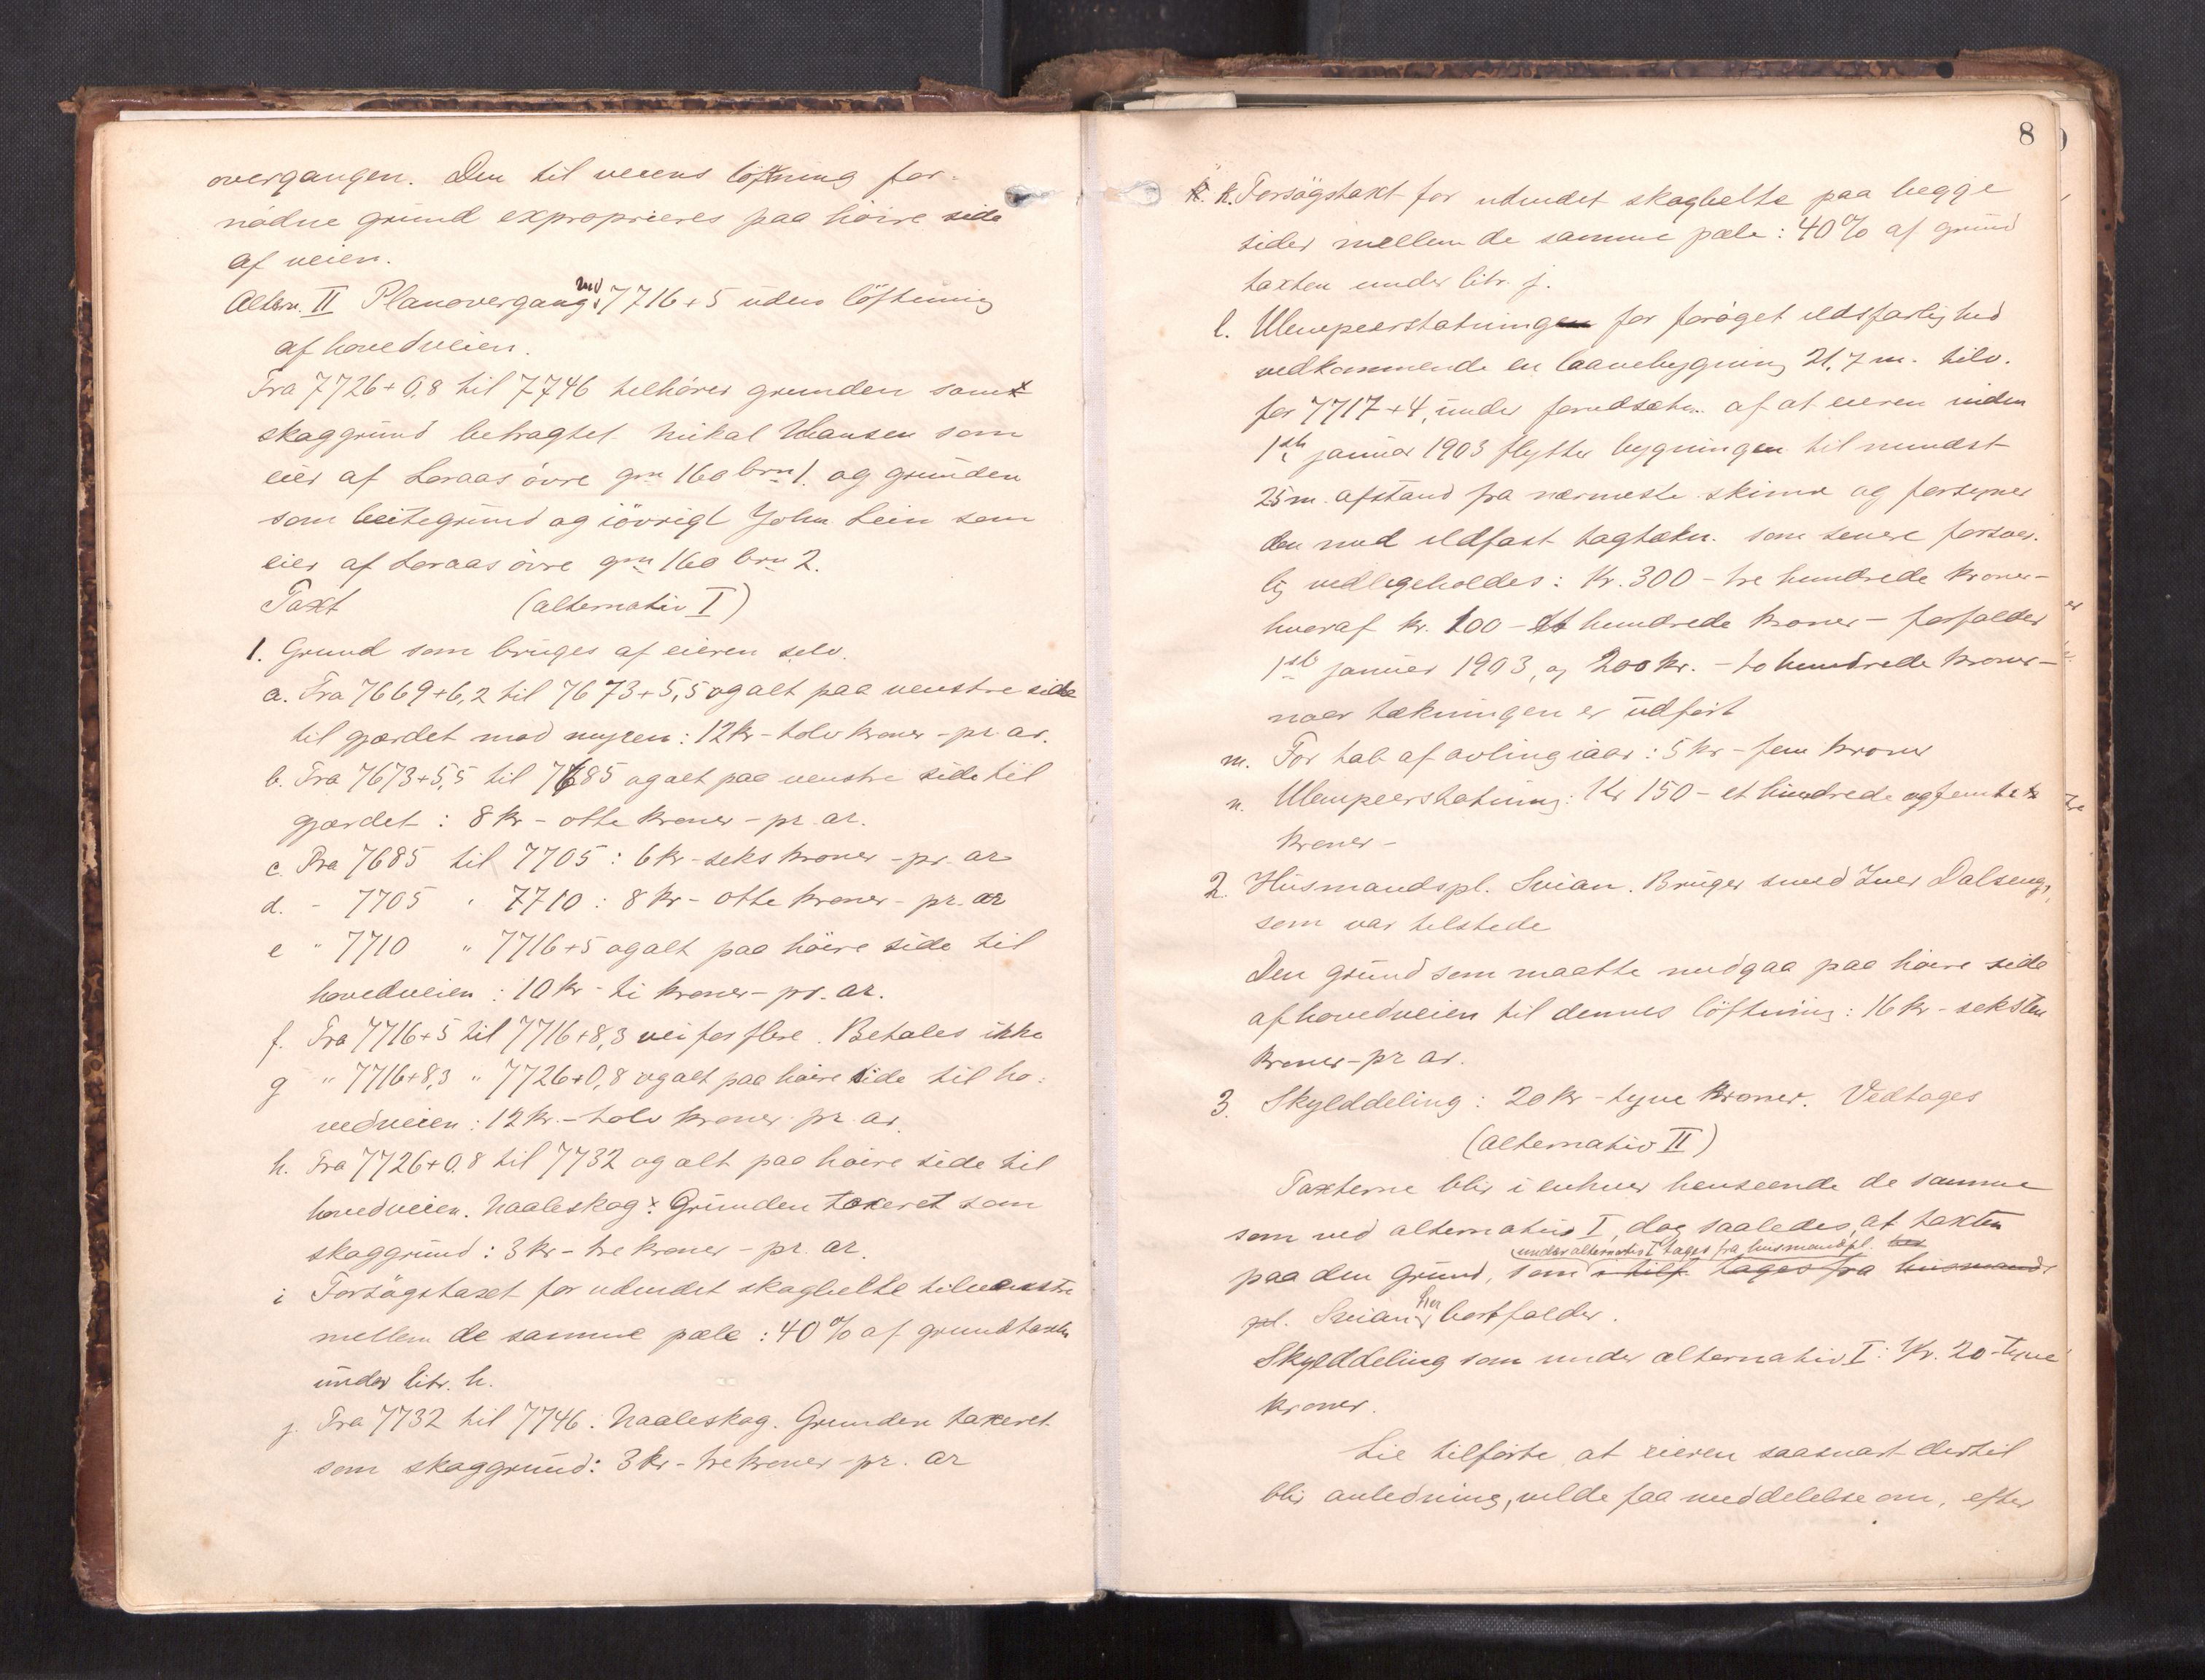 overgangen. Den til veiens löftning for-
nödne grund exproprieres paa höire side
af veien.
Altern. II Planovergang ved 7716+5 uden löftning
af hovedveien.
Fra 7726+0,8 til 7746 tilhörer grunden som
skoggrund betragtet Mikal Hansen som
eier af Loraas övre gm 160 brn 1. og grunden
som beitegrund og iövrigt John Lein som
eier af Loraas övre gm 160 brn 2.
Taxt (alternativ I)
1. Grund som bruges af eieren selv.
a. Fra 7669+6,2 til 7673+5,5 og alt paa venstre side
til gjærdet mod myren: 12 kr - tolv kroner - pr. ar.
b. Fra 7673+5,5 til 7685 og alt paa venstre side til
gjærdet : 8 kr - otte kroner - pr. ar.
c. Fra 7685 til 7705 : 6 kr - seks kroner - pr. ar
d. - 7705 " 7710 : 8 kr - otte kroner - pr. ar
e " 7710 " 7716+5 og alt paa höire side til
hovedveien : 10 kr - ti kroner - pr. ar.
f. Fra 7716+5 til 7716+8,3 vei for flere. Betales ikke
g " 7716+8,3 " 7726+0,8 og alt paa höire side til ho-
vedveien : 12 kr. - tolv kroner pr. ar.
h. Fra 7726+0.8 til 7732 og alt paa höire side til
hovedveien. Naaleskog. Grunden taxeret som
skoggrund : 3 kr - tre kroner - pr. ar.
i Forsögstaxt for udvidet skogbelte tilvenstre
mellem de samme pæle : 40 % af grundtaxten
under litr. h.
j. Fra 7732 til 7746 : Naaleskog. Grunden taxeret
som skoggrund : 3 kr - tre kroner - pr. ar
8
k. Forsögstaxt for udvidet skogbelte paa begge
sider mellem de samme pæle : 40 % af grund
taxten under litr. j.
l. Ulempeerstatningen for foröget ildsfarlighed
vedkommende en laavebygning 21,7 m. tilv.
for 7717+4, under forudsætn. af at eieren inden
1ste januar 1903 flytter bygningen til mindst
25 m. afstand fra nærmeste skinne og forsyner
den med ildfast tagtækn. som senere forsvar-
lig vedligeholdes : Kr. 300 - tre hundrede kroner -
hvoraf kr. 100 - et hundrede kroner - forfalder
1ste januar 1903, og 200 kr. - to hundrede kroner -
naar tækningen er udfört
m. For tab af avling iaar : 5 kr - fem kroner
n. Ulempeerstatning : Kr 150 - et hundrede og femti
kroner -
2. Husmandspl. Svian. Bruger smed Iver Dalseng,
som var tilstede
Den grund som maatte medgaa paa höire side
af hovedveien til dennes löftning : 16 kr - seksten
kroner - pr ar.
3. Skylddeling : 20 kr - tyve kroner. Vedtages
(alternativ II)
Taxterne blir i enhver henseende de samme
som ved alternativ I, dog saaledes, at taxten
under alternativ I tages fra husmandspl.
paa den grund, som i tilf. tages fra husmands
pl. Svian her bortfalder.
Skylddeling som under alternativ I : Kr. 20 - tyve
kroner.
Lie tilförte, at eieren saasnart dertil
blir anledning, vilde faa meddelelse om, efter